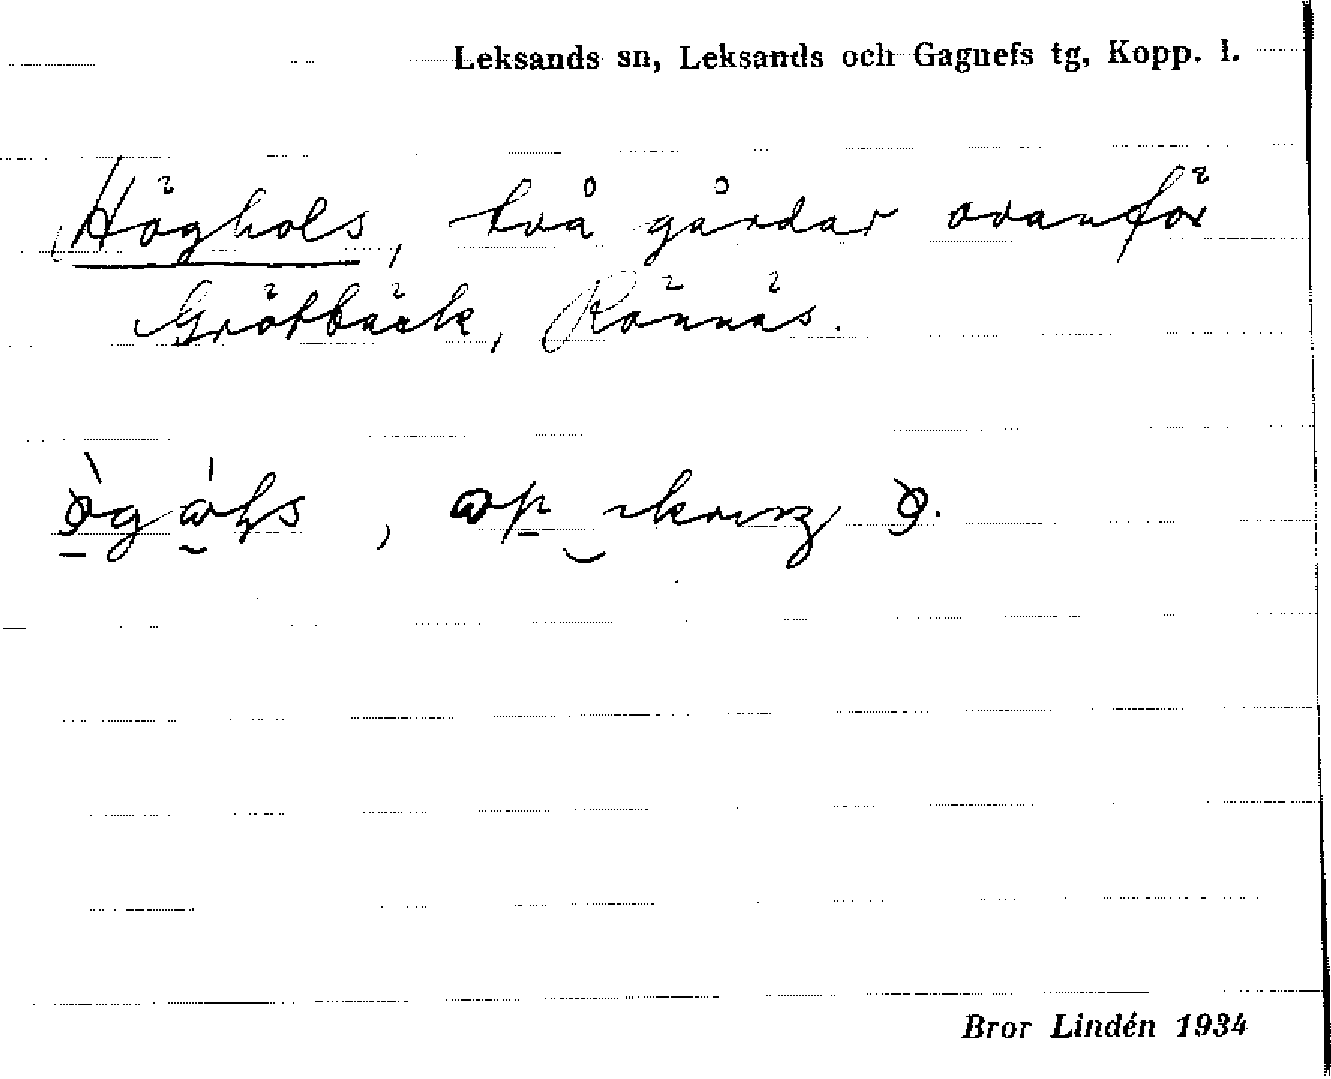 Leksands sn, Leksands och Gagnefs tg, Kopp. l.
Höghols, två gårdar ovanför
Grötbäck, Rönnäs.
Bror Lindén 1934